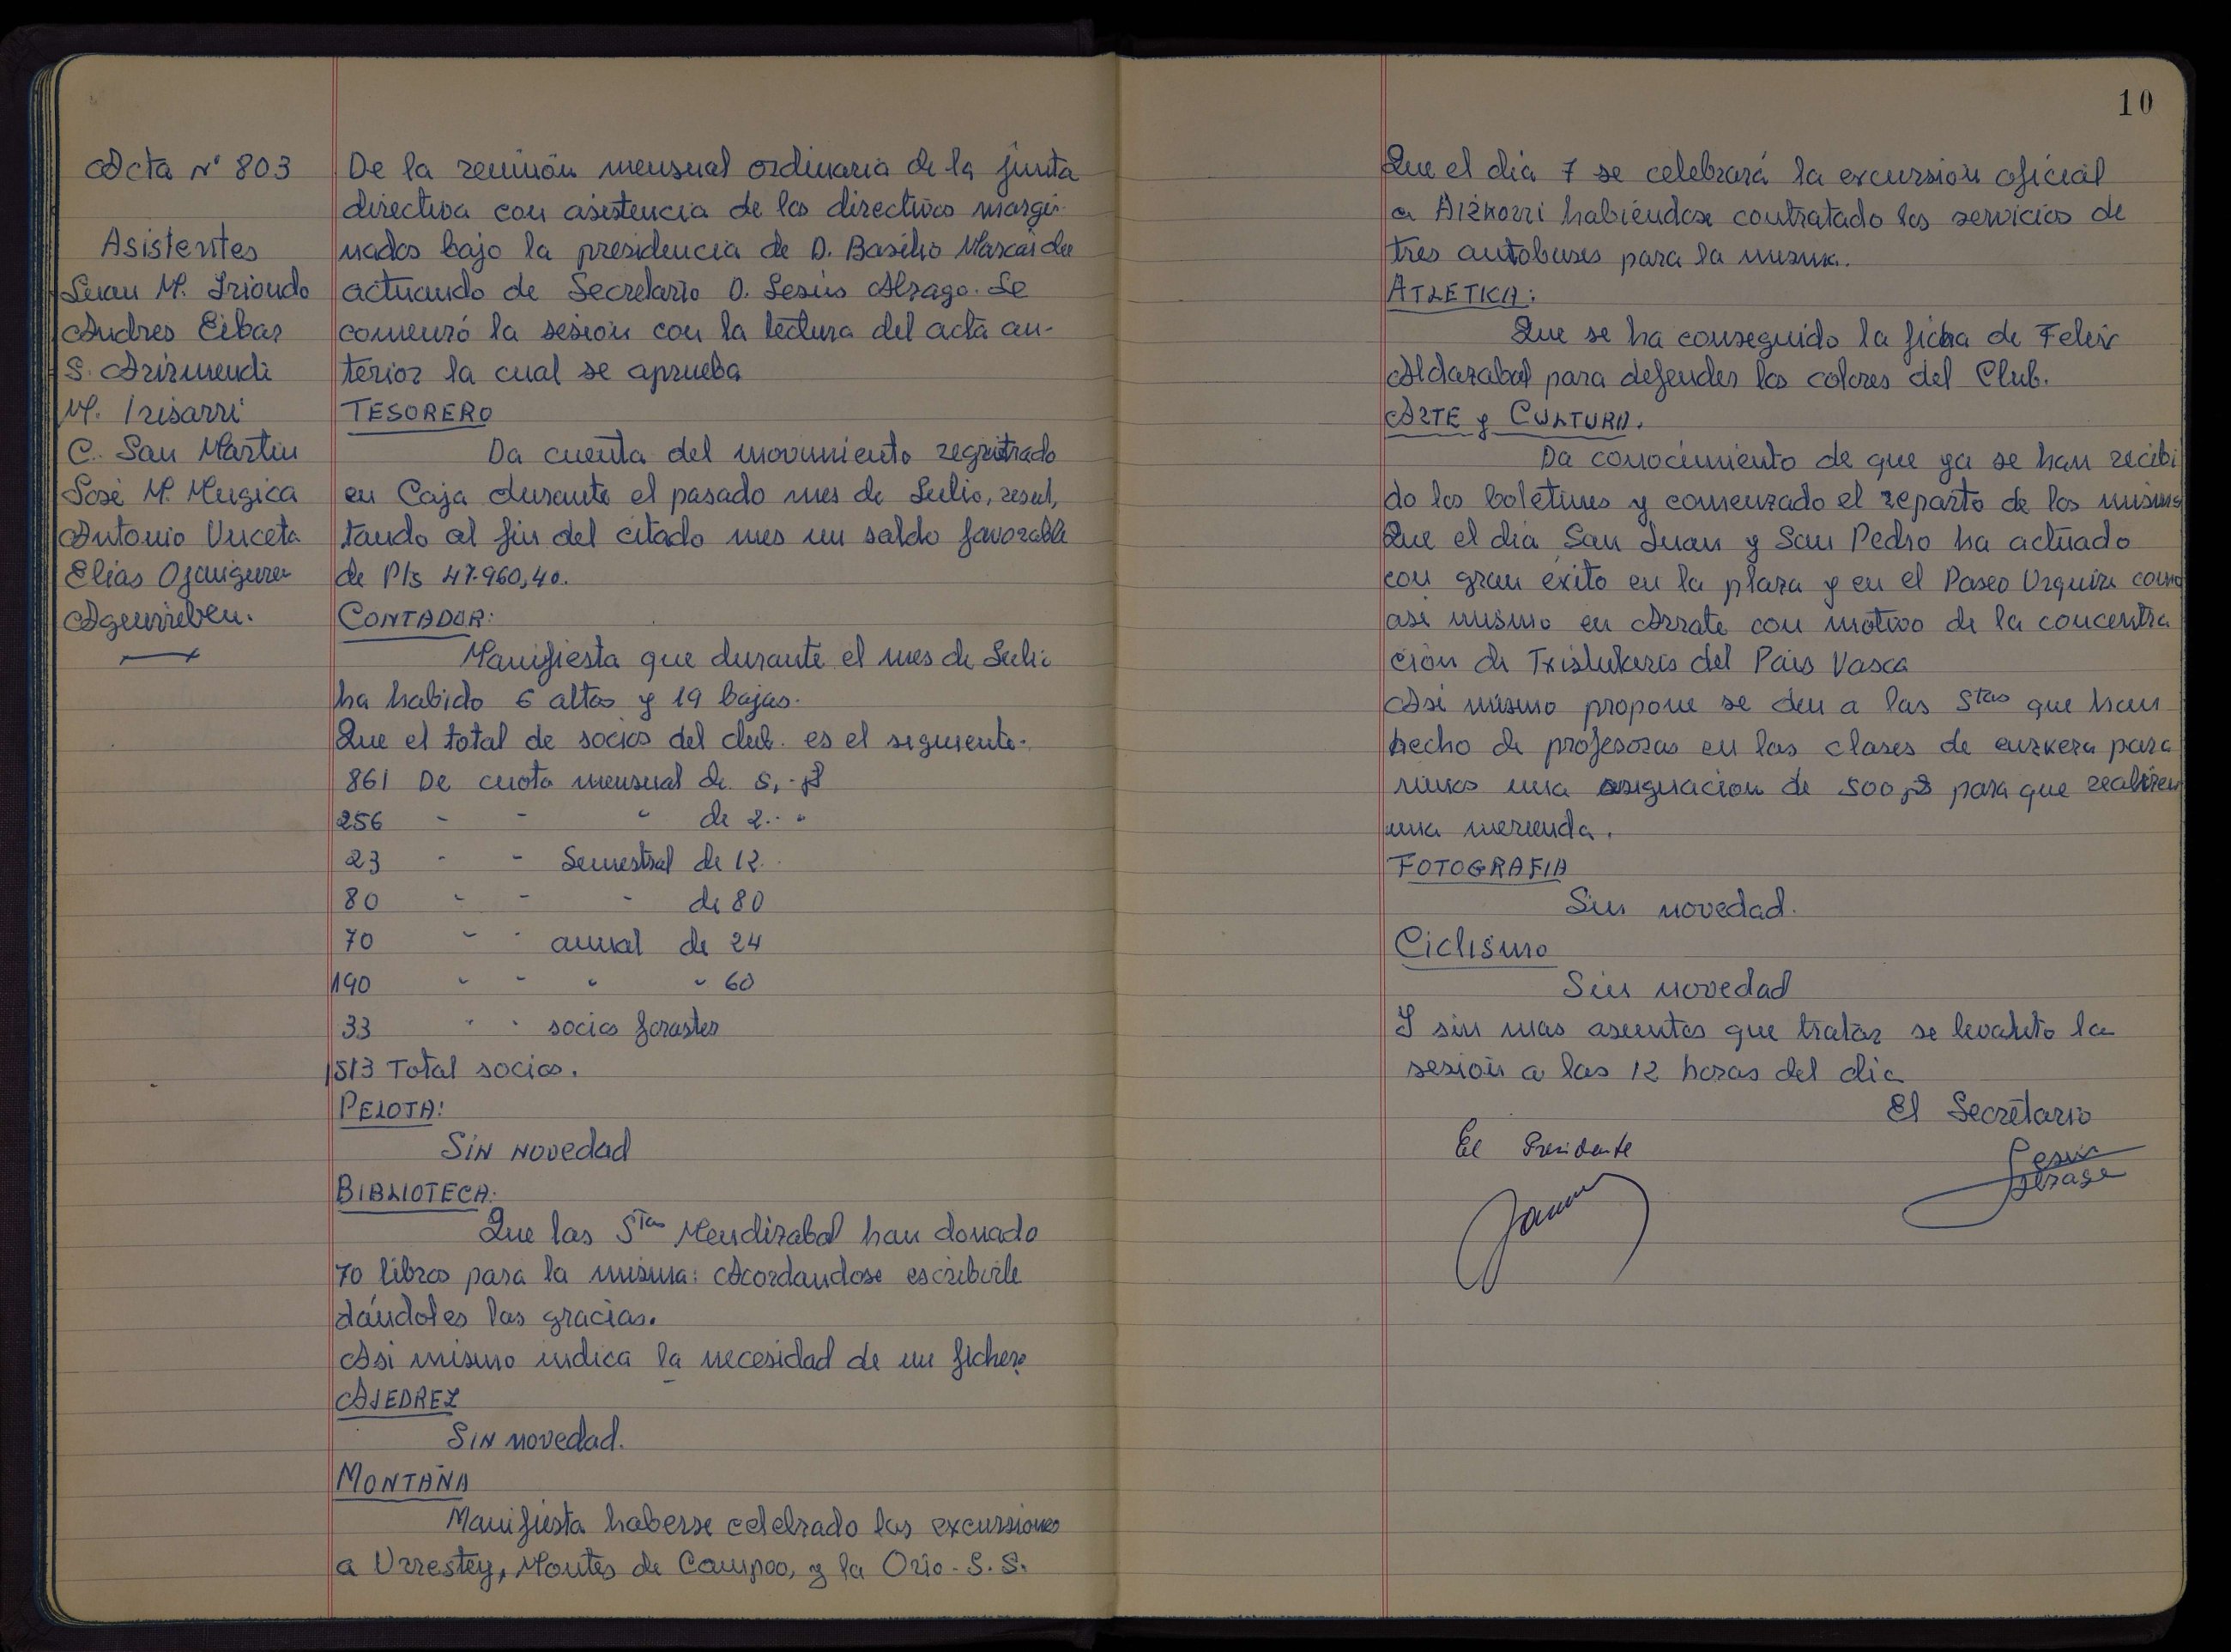 Acta Nº 803
Asistentes
Juan M. Iriondo
Andres Eibar
S. Arizmendi
M. Irisarri
C. San Martin
José M. Mugica
Antonio Unceta
Elias Ojanguren
Aguirreben.
De la reunión mensual ordinaria de la junta
directiva con asistencia de los directivos margi-
nados bajo la presidencia de D. Basilio
actuando de Secretario D. Jesús Alzaga. Se
comenzó la sesión con la lectura del acta an-
terior la cual se aprueba
TESORERO
Da cuenta del movimiento registrado
en Caja durante el pasado mes de Julio, resul,
tando al fin del citado mes un saldo favorable
de Pts 47.960,40.
CONTADOR:
Manifiesta que durante el mes de Julio
ha habido 6 altas y 19 bajas.
Que el total de socios del club. es el siguiente.
861 De cuota mensual de 5,-
256 - - " de 2.- "
23 - - Semestral de 12.
80 - - - de 80
70 - - anual de 24
190 - - " - 60
33 " " socios forasteros
1513 Total socios.
PELOTA:
SIN NOVEDAD
BIBLIOTECA:
Que las Stas Mendizabal han donado
70 libros para la misma: Acordandose escribirle
dándoles las gracias.
Asi mismo indica la necesidad de un fichero
AJEDREZ
SIN novedad.
MONTAÑA
Manifiesta haberse celebrado las excursiones
a Urrestey, Montes de Campoo, y la Orio - S. S.
10
Que el día 7 se celebrará la excursión oficial
a Aizkorri habiéndose contratado los servicios de
tres autobuses para la misma.
ATLETICA:
Que se ha conseguido la ficha de Felix
Aldazabal para defender los colores del Club.
ARTE y CULTURA.
Da conocimiento de que ya se han recibi
do los boletines y comenzado el reparto de los mismos
Que el dia San Juan y San Pedro ha actuado
con gran éxito en la plaza y en el Paseo Urquizu como
asi mismo en Arrate con motivo de la concentra
ción de Txistularis del Pais Vasco
Asi mismo propone se den a las Stas que han
hecho de profesoras en las clases de euzkera para
niños una asignacion de 500 pts para que realicen
una merienda.
FOTOGRAFIA
Sin novedad.
Ciclismo
Sin novedad
Y sin mas asuntos que tratar se levanto la
sesión a las 12 horas del dia
El Secretario
El Presidente
Jesús
Alzaga